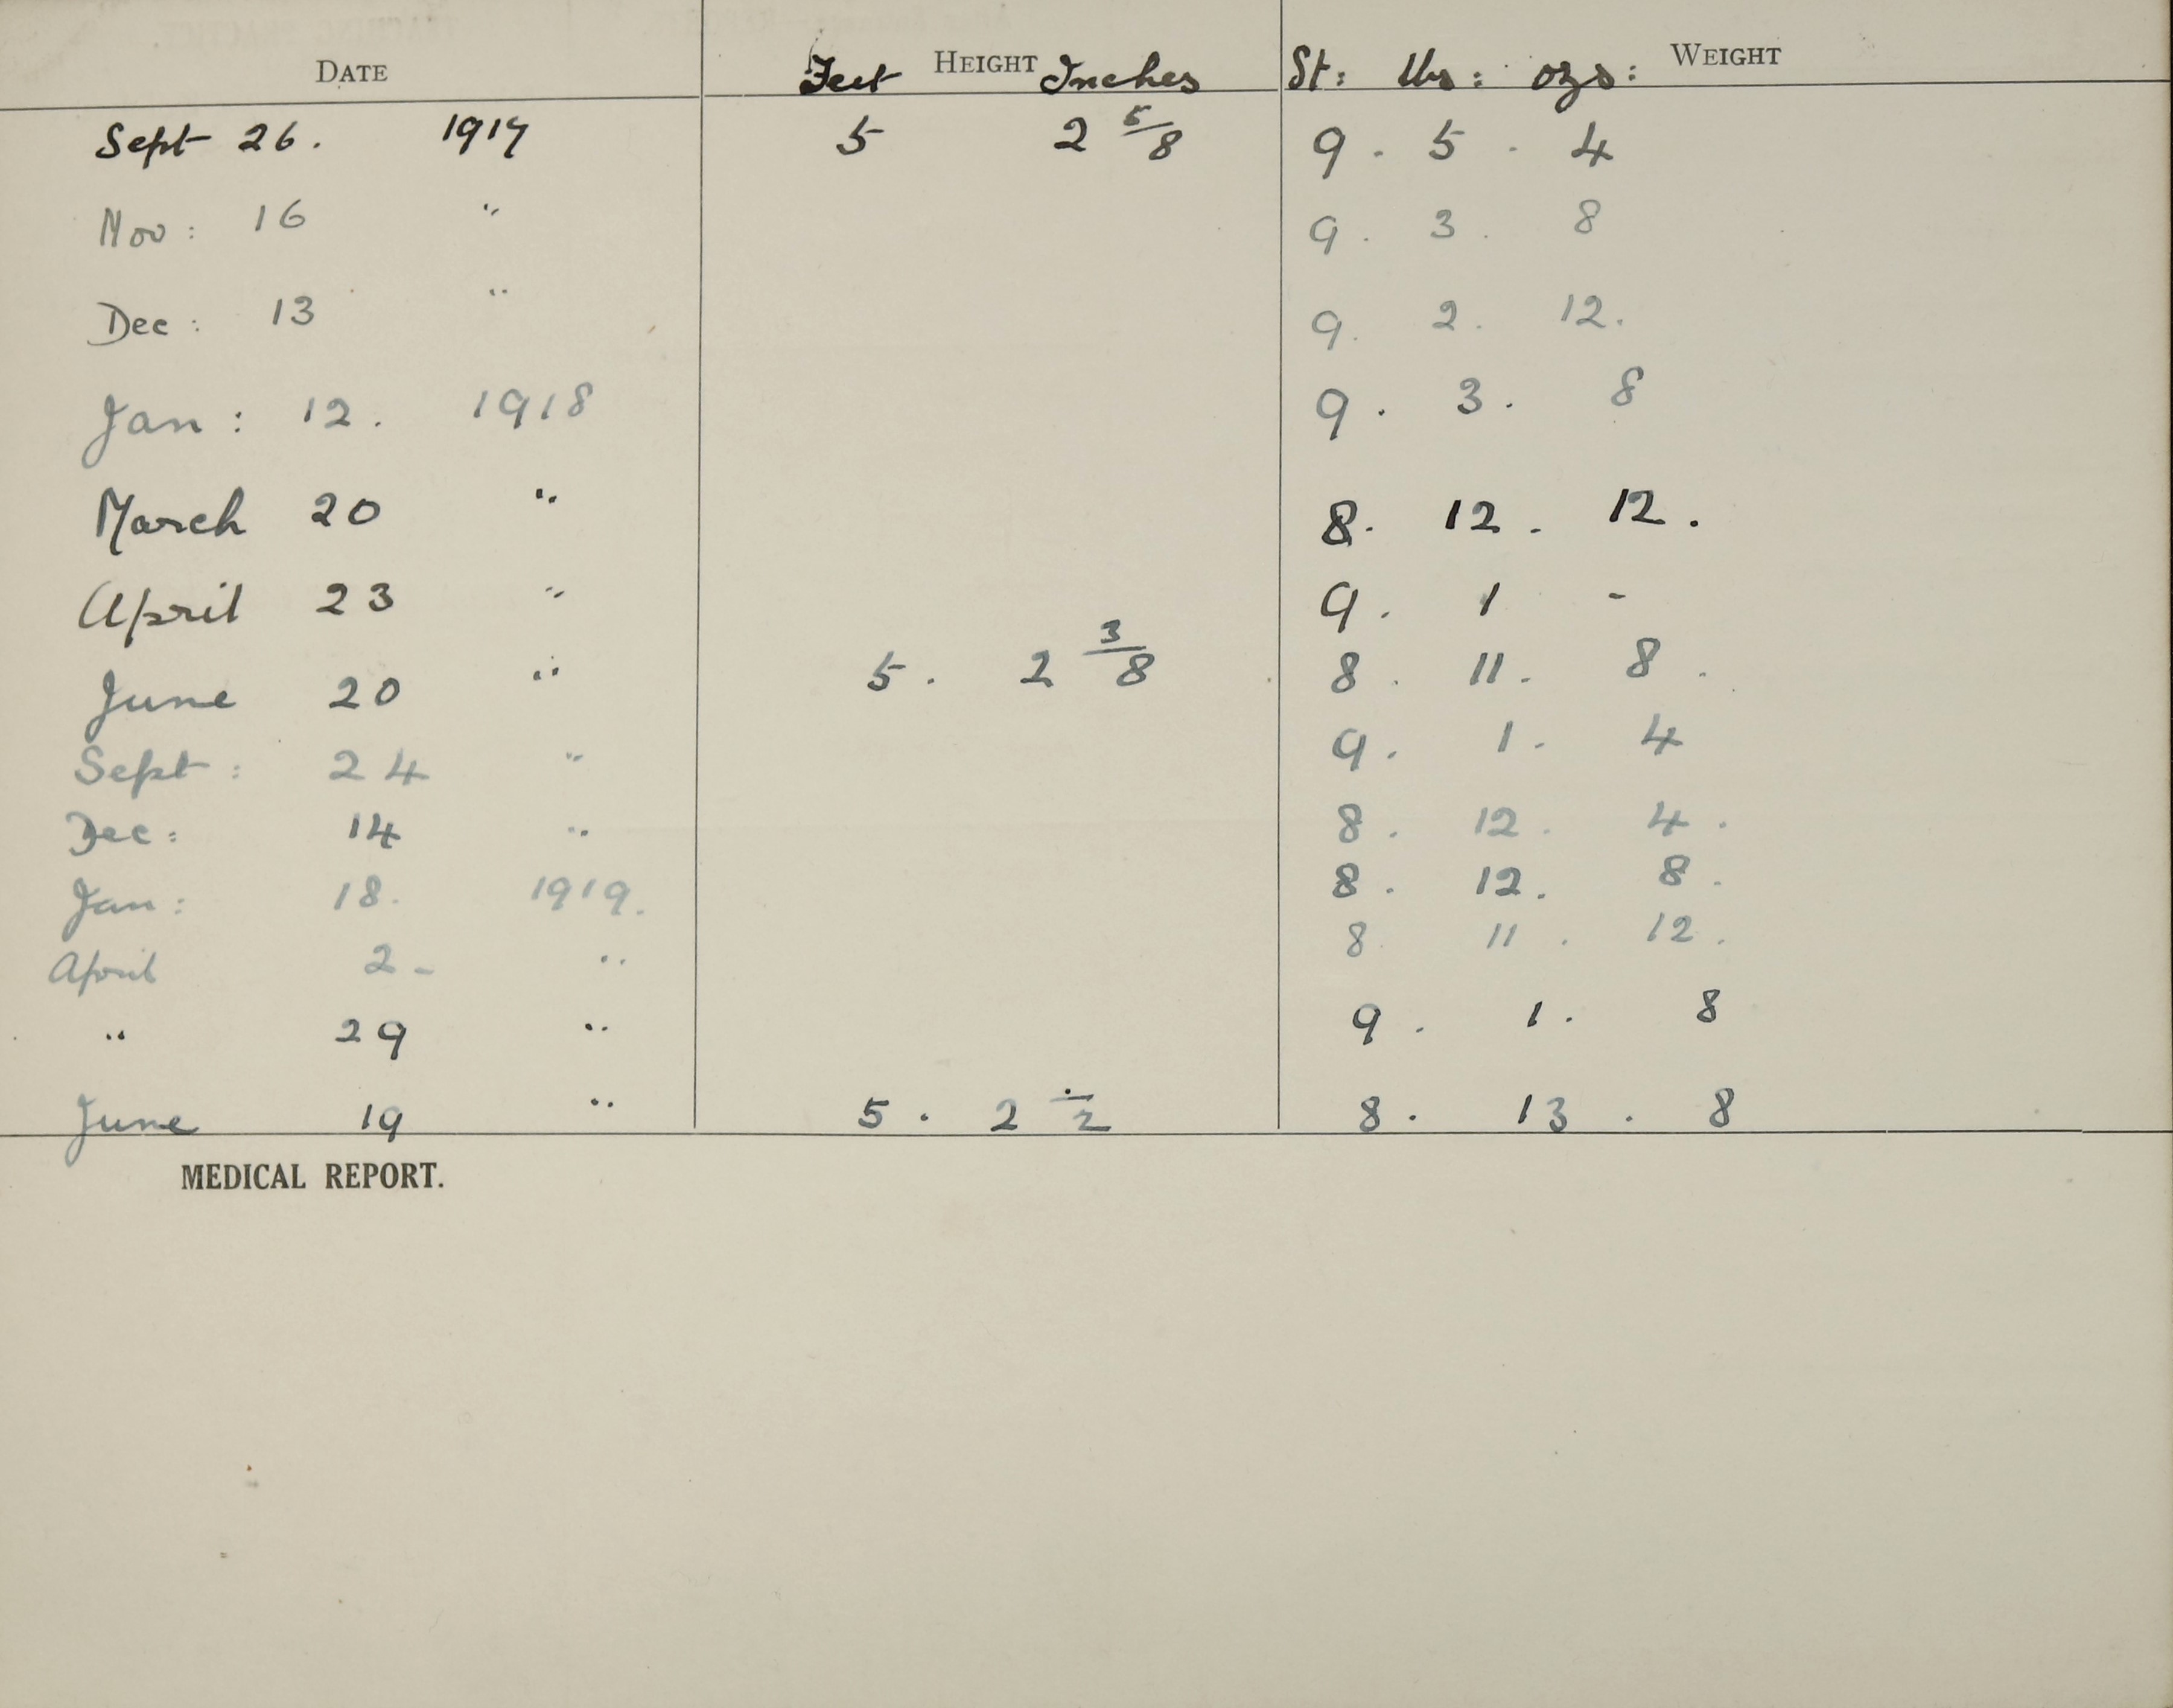 DATE Feet HEIGHT Inches St: lbs: ozs: WEIGHT
Sept 26. 1917 5 2 5/8 9 . 5 . 4
Nov: 16 " 9 . 3 . 8
Dec: 13 " 9. 2. 12.
Jan: 12. 1918 9 . 3 . 8
March 20 " 8. 12. 12.
April 23 " 9. 1 -
June 20 " 5. 2 3/8 8. 11. 8.
Sept: 24 " 9. 1. 4
Dec: 14 " 8. 12. 4.
Jan: 18. 1919. 8. 12. 8.
April 2- " 8 11. 12.
" 29 " 9. 1. 8
June 19 " 5. 2 1/2 8. 13. 8
MEDICAL REPORT.